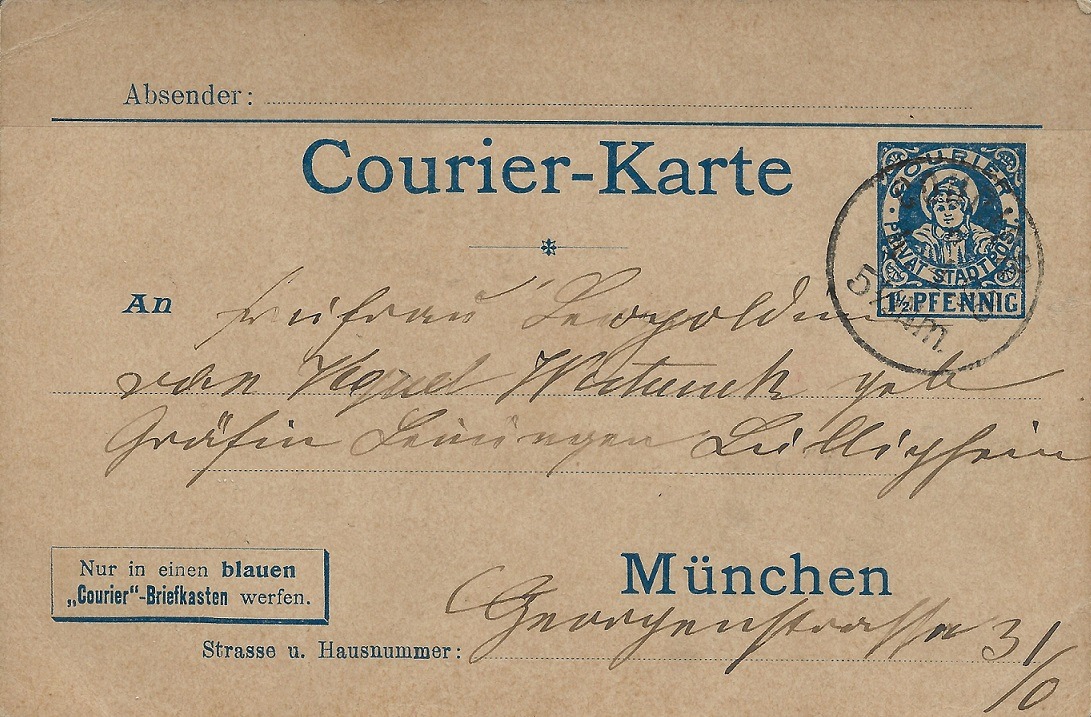 Absender:
Courier-Karte
COURIER
PRIVAT STADTPOST
1½ PFENNIG
5
Nm.
An Freifrau Leopoldine
von
geb
Gräfin Leiningen Billigheim
München
Nur in einen blauen
„Courier“-Briefkasten werfen.
Georgenstrasse 31/0
Strasse u. Hausnummer: